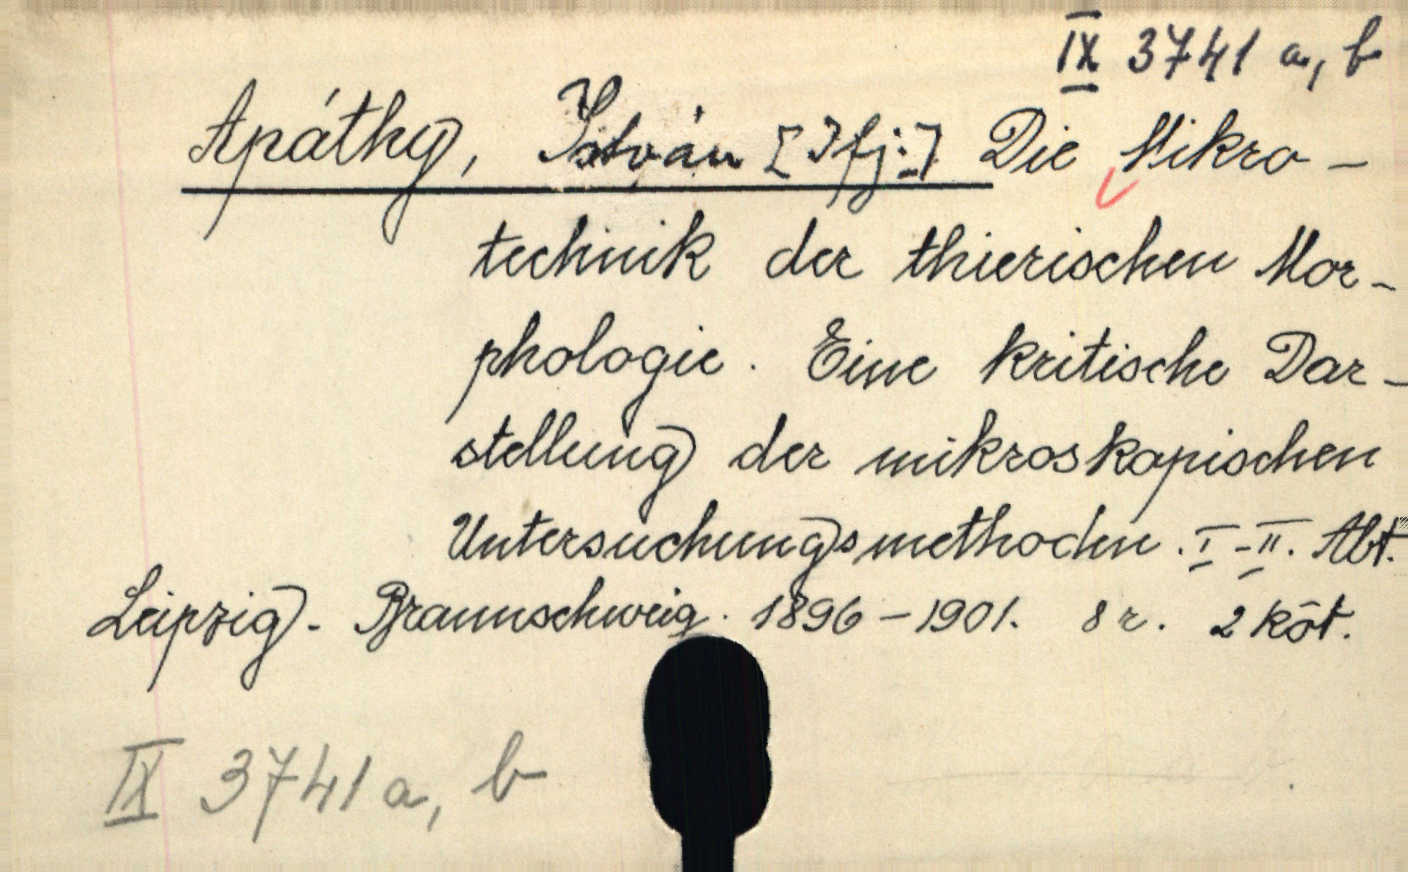 IX 3741 a, b
Apáthy, István [Ifj.:] Die Mikro-
technik der thierischen Mor-
phologie. Eine kritische Dar-
stellung der mikroskopischen
Untersuchungsmethoden. I-II. Abt.
Leipzig - Braunschweig. 1896-1901. 8 r. 2 köt.
IX 3741 a, b